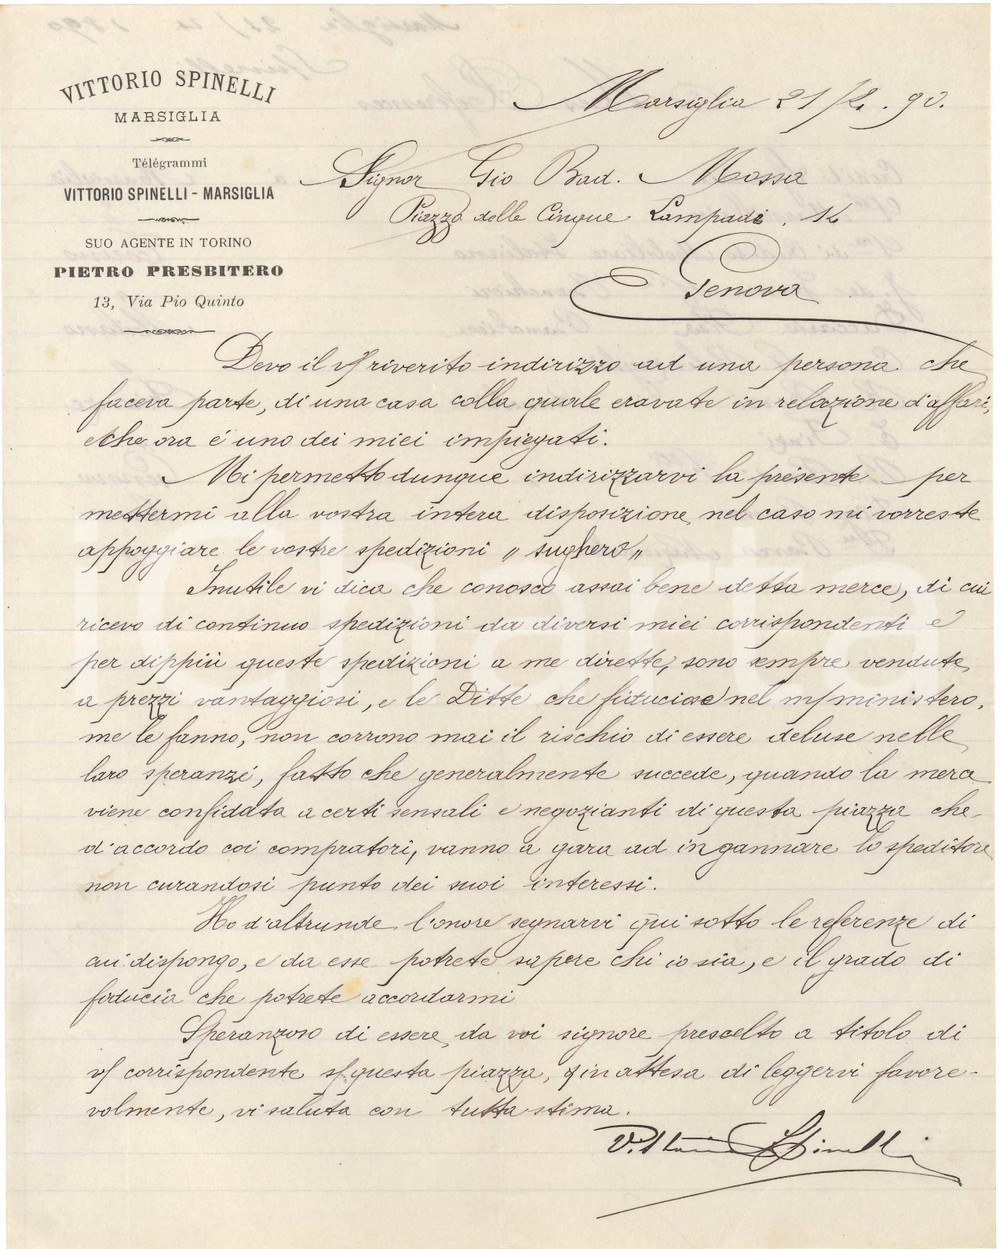 VITTORIO SPINELLI
MARSIGLIA
Télégrammi
VITTORIO SPINELLI - MARSIGLIA
SUO AGENTE IN TORINO
PIETRO PRESBITERO
13, Via Pio Quinto
Marsiglia 21/2. 90.
Signor Gio Bad. Mossa
Piazza delle Cinque Lampadi, 14
Genova
Devo il v/ riverito indirizzo ad una persona che
faceva parte, di una casa colla quale eravate in relazione d'affari,
e che ora é uno dei miei impiegati.
Mi permetto dunque indirizzarvi la presente per
mettermi alla vostra intera disposizione nel caso mi vorreste
appoggiare le vostre spedizioni „ sughero „
Inutile vi dica che conosco assai bene detta merce, di cui
ricevo di continuo spedizioni da diversi miei corrispondenti e
per dippiú queste spedizioni a me dirette, sono sempre vendute
a prezzi vantaggiosi, e le Ditte che fiduciose nel m/ ministero,
me le fanno, non corrono mai il rischio di essere deluse nelle
loro speranze, fatto che generalmente succede, quando la merce
viene confidata a certi sensali e negozianti di questa piazza che
d'accordo coi compratori, vanno a gara ad ingannare lo speditore
non curandosi punto dei suoi interessi.
Ho d'altrunde l'onore segnarvi qui sotto le referenze di
cui dispongo, e da esse potrete sapere chi io sia, e il grado di
fiducia che potrete accordarmi
Speranzoso di essere da voi signore prescelto a titolo di
v/ corrispondente s/ questa piazza, in attesa di leggervi favore-
volmente, vi saluta con tutta stima.
Vittorio Spinelli